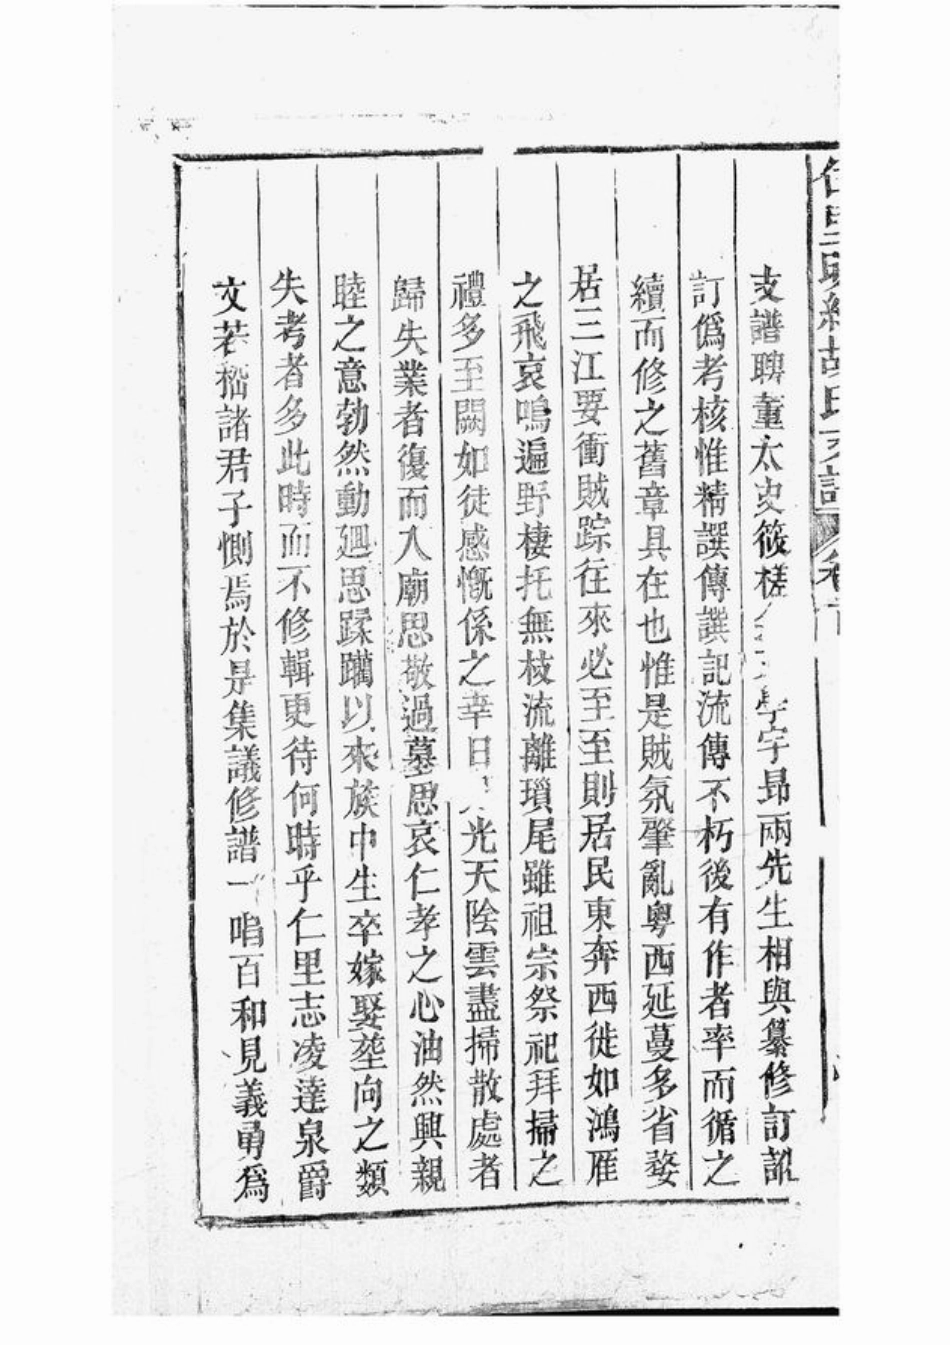 仁里明經胡氏支譜 卷首
支譜聘董太史筱槎 學宇昂兩先生相與纂修訂訛
訂僞考核惟精譔傳譔記流傳不朽後有作者率而循之
續而修之舊章具在也惟是賊氛肇亂粵西延蔓多省婺
居三江要衝賊踪往來必至至則居民東奔西徙如鴻雁
之飛哀鳴遍野棲托無枝流離瑣尾雖祖宗祭祀拜掃之
禮多至闕如徒感慨係之幸日 光天陰雲盡掃散處者
歸失業者復而入廟思敬過墓思哀仁孝之心油然興親
睦之意勃然動廻思蹂躪以來族中生卒嫁娶塋向之類
失考者多此時而不修輯更待何時乎仁里志凌達泉爵
文若嵇諸君子惻焉於是集議修譜一唱百和見義勇爲